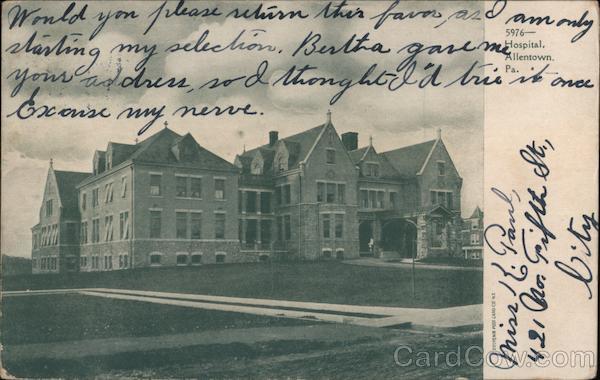 Would you please return this favor, as I am only
starting my selection. Bertha gave me
your address, so I thought I'd trie it once
Excuse my nerve.
5976—
Hospital,
Allentown,
Pa.
Miss K. Paul,
421 No. Fifth St.,
City
SOUVENIR POST CARD CO. N.Y.
CardCow.com